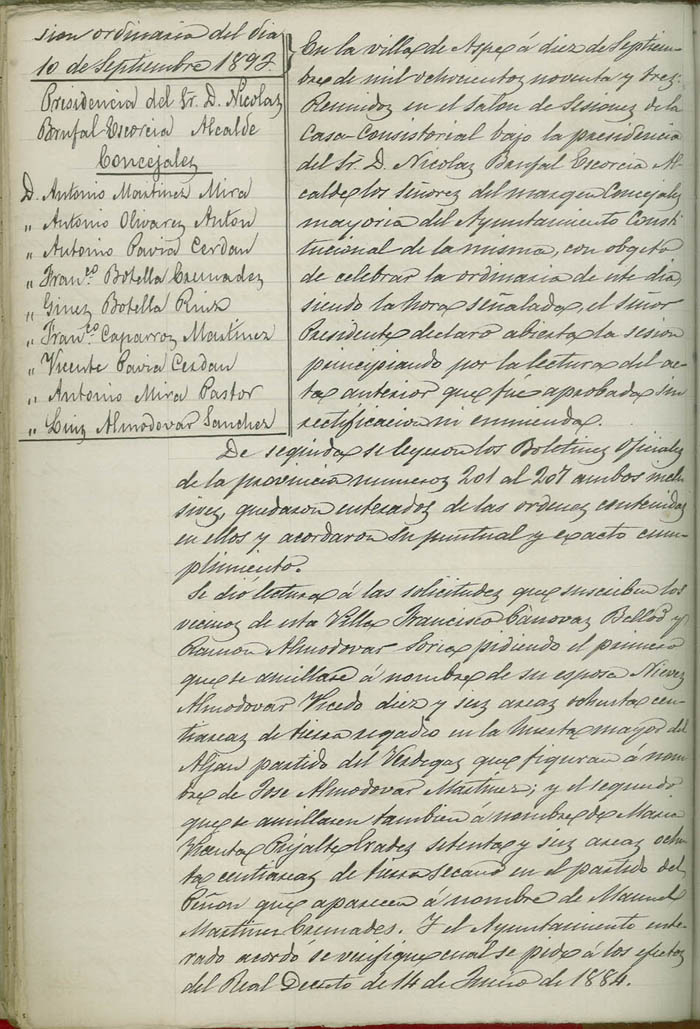 sion ordinaria del dia
10 de Septiembre 1893.
Presidencia del Sr. D. Nicolas
Brufal Escorcia Alcalde
Concejales
D. Antonio Martinez Mira
" Antonio Olivares Anton
" Antonio Pavia Cerdan
" Fran.co Botella Cremades
" Gines Botella Ruiz
" Fran.co Caparros Martinez
" Vicente Pavia Cerdan
" Antonio Mira Pastor
" Luis Almodovar Sanchez
En la villa de Aspe á diez de Septiem-
bre de mil ochocientos noventa y tres:
Reunidos en el Salon de Sesiones de la
Casa Consistorial bajo la presidencia
del Sr. D. Nicolas Brufal Escorcia Al-
calde los señores del margen Concejales
mayoria del Ayuntamiento Consti
tucional de la misma, con objeto
de celebrar la ordinaria de este dia,
siendo la hora señalada, el señor
Presidente declaró abierta la sesion
principiando por la lectura del ac-
ta anterior que fué aprobada sin
rectificacion ni enmienda.
De seguida se leyeron los Boletines Oficiales
de la provincia numeros 201 al 207 ambos inclu
sives, quedaron enterados de las ordenes contenidas
en ellos y acordaron su puntual y exacto cum-
plimiento.
Se dió lectura á las solicitudes que suscriben los
vecinos de esta Villa Francisco Canovas Bellod y
Ramon Almodovar Soria pidiendo el primero
que se amillare á nombre de su esposa Nieves
Almodovar Vicedo diez y seis areas ochenta cen-
tiareas de tierra regadio en la huerta mayor del
Aljau partido del Verdegas que figuran á nom-
bre de Jose Almodovar Martinez; y el segundo
que se amillaren tambien á nombre de Maria
Vicenta Pujalte Prades setenta y seis areas ochen
ta centiareas de tierra secano en el partido del
Peñon que aparecen á nombre de Manuel
Martinez Cremades. Y el Ayuntamiento ente-
rado acordó se verifique cual se pide á los efectos
del Real Decreto de 14 de Junio de 1884.